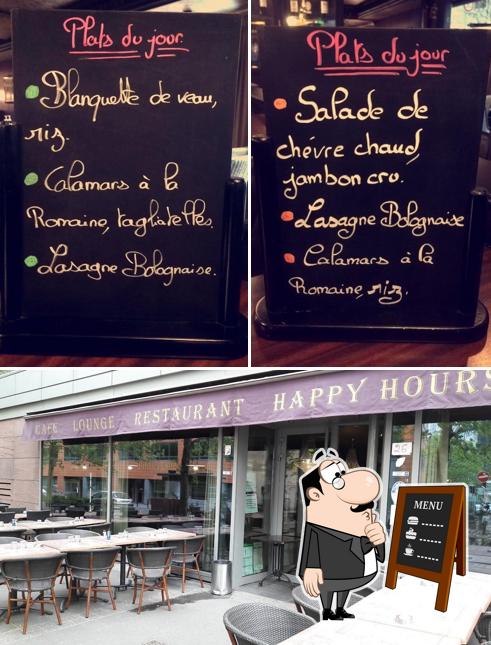 Plats du jour
Blanquette de veau,
riz.
Calamars à la
Romaine, tagliatelles.
Lasagne Bolognaise.
Plats du jour
Salade de
chèvre chaud,
jambon cru.
Lasagne Bolognaise
Calamars à la
Romaine, riz.
CAFE LOUNGE RESTAURANT HAPPY HOURS
MENU